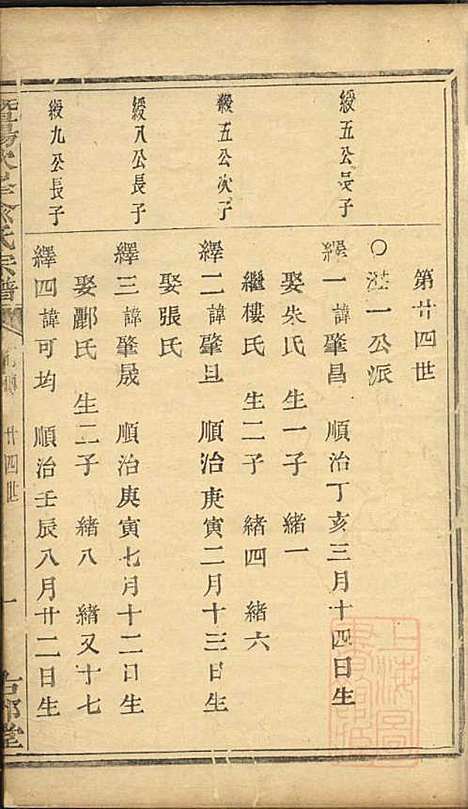 第廿四世
〇湛一公派
綬五公長子
繹一諱肇昌 順治丁亥三月十四日生
娶朱氏 生一子 緒一
繼樓氏 生二子 緒四 緒六
綬五公次子
繹二諱肇旦 順治庚寅二月十三日生
娶張氏
綬八公長子
繹三諱肇晟 順治庚寅七月十二日生
娶酈氏 生二子 緒八 緒又十七
綬九公長子
繹四諱可均 順治壬辰八月廿二日生
廿四世
一